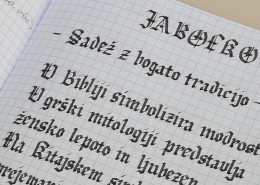 JABOLKO
- Sadež z bogato tradicijo -
V Bibliji simbolizira modrost
V grški mitologiji predstavlja
žensko lepoto in ljubezen
Na Kitajskem